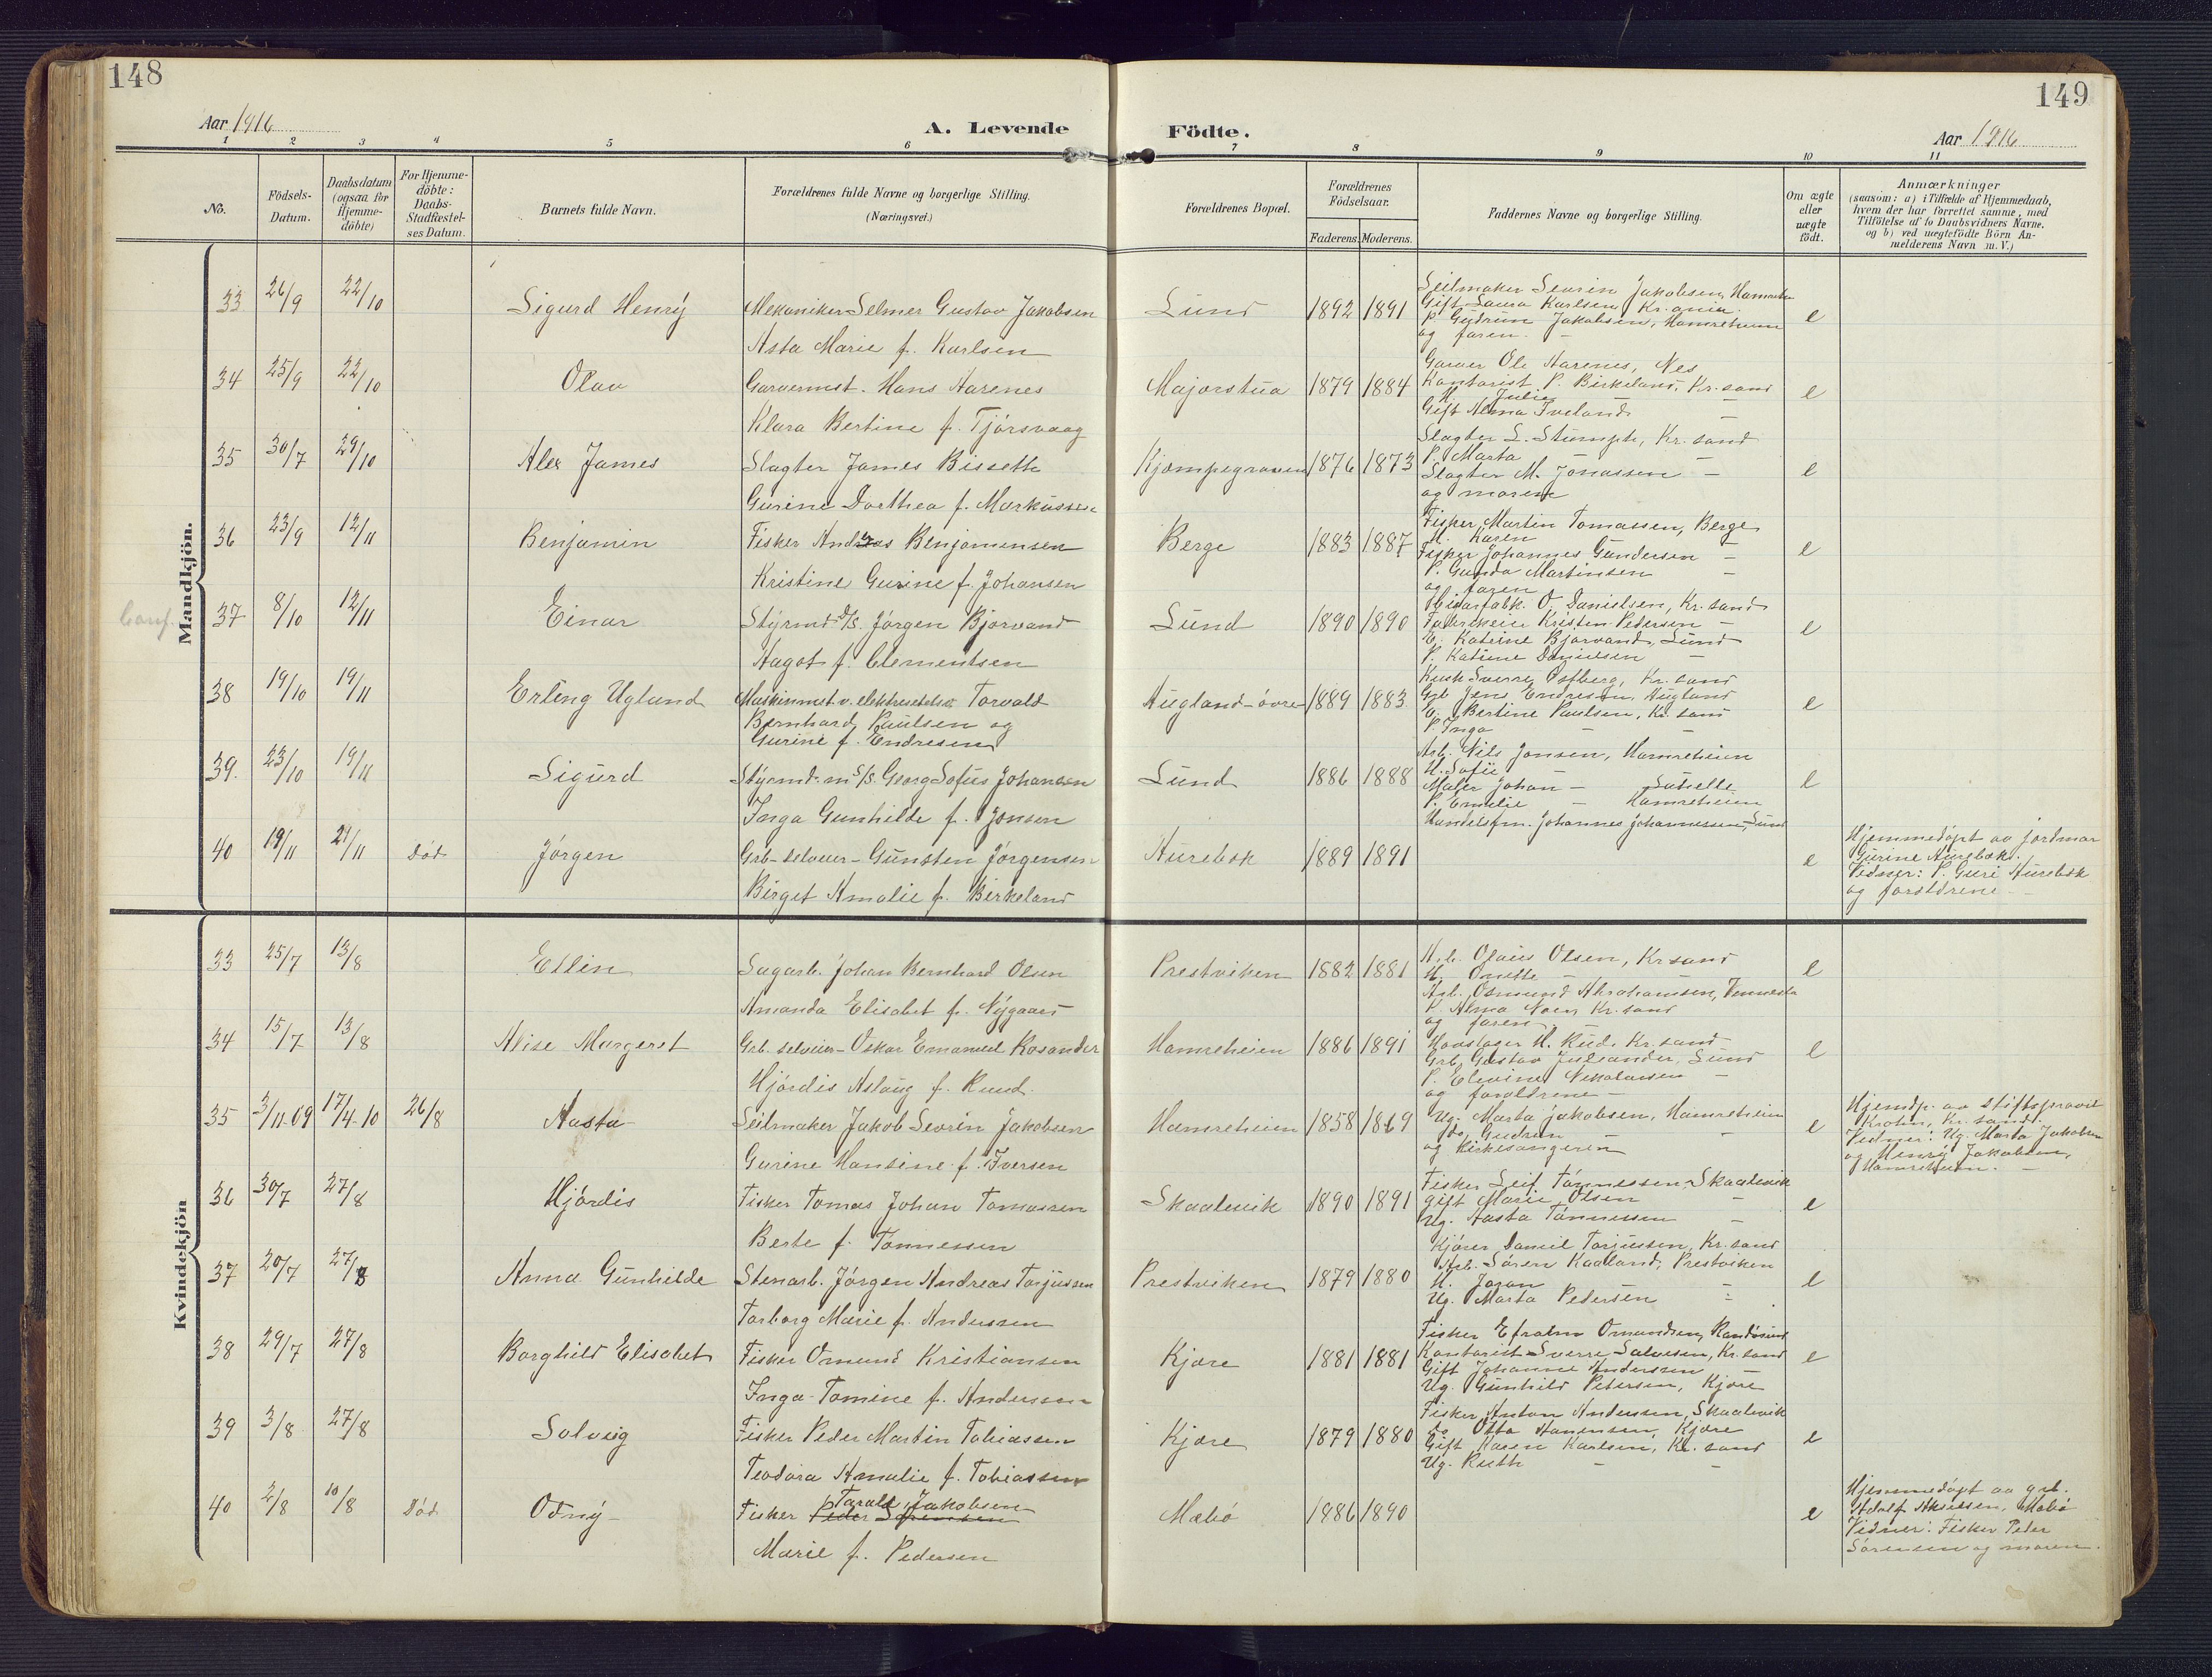 148
149
Aar 1916
A. Levende
Födte.
Aar 1916
1 2 3 4 5 6 7 8 9 10 11
No.
Födsels-Datum.
Daabsdatum (ogsaa for Hjemme-döbte)
For Hjemme-döbte: Daabs-Stadfæstel-ses Datum.
Barnets fulde Navn.
Forældrenes fulde Navne og borgerlige Stilling.
(Næringsvei.)
Forældrenes Bopæl.
Forældrenes Födselsaar.
Faderens. Moderens.
Faddernes Navne og borgerlig Stilling.
Om ægte eller uægte födt.
Anmærkninger
(saasom: a) i Tilfælde af Hjemmedaab, hvem der har forrettet samme, med Tilföielse af to Daabsvidners Navne, og b) ved uægtefödte Börn Anmelderens Navn m. V.)
Mandkjön.
33 26/9 22/10 Sigurd Henrÿ Mekaniker Selmer Gustav Jakobsen Lund 1892 1891 e
Asta Marie f. Karlsen
Seilmaker Sevrin Jakobsen, Hamreh.
Gift Laura Karlsen, Kr.ania.
P. Gudrun Jakobsen, Hamreheien
og faren.
34 25/9 22/10 Olav Garvermst. Hans Aarenes Majorstua 1879 1884 e
Klara Bertine f. Tjórsvaag
Garver Ole Aarenes, Nes
Kontorist P. Birkeland, Kr.sand
H. Julie
Gift Alma Iveland
35 30/7 29/10 Alex James Slagter James Bissett Kjempegraven 1876 1873 e
Gurine Dorthea f. Markussen
Slagter L. Stumph, Kr.sand
P. Marta
Slagter M. Jonassen
og moren
36 23/9 12/11 Benjamin Fisker Andreas Benjaminsen Berge 1883 1887 e
Kristine Gurine f. Johansen
Fisker Martin Tomassen, Berge
H. Karen
Fisker Johannes Gundersen
P. Gunda Martinsen
og faren
Conf. 37 8/10 12/11 Einar Stÿrmd D/S. Jórgen Bjorvand Lund 1890 1890 e
Aagot f. Clementsen
O. Danielsen, Kr.sand
Kristen Pedersen
E. Katrine Bjorvand, Lund
P. Katrine Danielsen
38 19/10 19/11 Erling Ugland Maskinmst. v. Torvald Augland-óvre 1889 1883 e
Bernhard Paulsen og
Gurine f. Endresen
Kusk Sverre Østberg, Kr.sand
Grb. Jens Endresen, Augland
E. Bertine Paulsen, Kr.sand
P. Inga
39. 23/10 19/11 Sigurd Stÿrmd. m S/S. Georg Sofus Johansen Lund 1886 1888 e
Inga Gunhilde f. Jonsen
Arb. Nils Jonsen, Hamreheien
H. Sofie
Maler Johan
P. Emelie Hamreheien
Handelsfm. Johannes Johannessen, Lund
40 19/11 21/11 Død Jórgen Grb-selveier-Gunsten Jórgensen Aurebek 1889 1891 e
Birget Amalie f. Birkeland
Hjemmedópt av jordmor
Gurine Aurebæk.
Vidner: P. Guri Aurebæk
og foreldrene
Kvindekjön
33 25/7 13/8 Ellin Sagarb. Johan Bernhard Olsen Prestviken 1882 1881 e
Amanda Elisabet f. Nÿgaard
Arb. Olaus Olsen, Kr.sand
H. Onette
Arb. Osmund Abrahamsen, Vennesla
P. Alma Kr.sand
og faren
34 15/7 13/8 Alise Margeret Grb. selveier-Oskar Emanuel Rosander Hamreheien 1886 1891 e
Hjórdis Aslaug f. Ruud.
Hovslager H. Rud, Kr.sand
Grb. Gustav Julsander, Lund
P. Elevine Nikolaisen
og foreldrene
35 3/11-09 17/4-10 26/8 Aasta Seilmaker Jakob Sevrin Jakobsen Hamreheien 1858 1869 e
Gurine Hansine f. Iversen
Ug. Marta Jakobsen, Hamreheien
do Gudrun
og kirkesangeren
Hjemdp. av stiftsprovst
Krohn, Kr.sand.
Vidner: Ug. Marta Jakobsen
og Henrÿ Jakobsen,
Hamreheien.
36 30/7 27/8 Hjórdis Fisker Tomas Johan Tomassen Skaalevik 1890 1891 e
Berte f. Tónnessen
Fisker Leif Tónnessen, Skaalevik
gift Marie Olsen
Ug. Aasta Tónnessen
37 20/7 27/8 Anna Gunhilde Stenarb. Jórgen Andreas Torjussen Prestviken 1879 1880 e
Torborg Marie f. Andersen
Kjórer Daniel Torjussen, Kr.sand
Arb. Sóren Kaaland, Prestviken
H. Joran
Ug. Marta Pedersen
38 29/7 27/8 Borghild Elisabet Fisker Omund Kristiansen Kjære 1881 1881 e
Inga Tomine f. Andersen
Fisker Efraim Omundsen, Randósund
Kontorist Sverre Salvesen, Kr.sand
Gift Johanne Anderssen
Ug. Gunhild Petersen, Kjære
39 3/8 27/8 Solveig Fisker Peder Martin Tobiassen Kjære 1879 1880 e
Teodora Amalie f. Tobiassen
Fisker Anton Andersen, Skaalevik
do Otto Hanensen, Kjære
Gift Karen Karlsen, Kr.sand
Ug. Ruth
40 2/8 10/8 Død Odnÿ Fisker Peder Sórensen Tarald Jakobsen Mæbó 1886 1890 e
Marie f. Pedersen
Hjemmedópt av grb.
Adolf Akselsen, Mæbó
Vidner: Fisker Peder
Sórensen og moren.